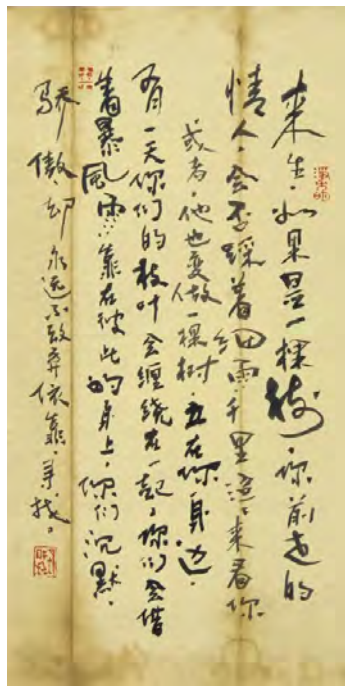 来生，如果是一棵树，你前世的
情人，会否踩着细雨，千里迢迢来看你
或者，他也变做一棵树，立在你身边，
有一天你们的枝叶会缠绕在一起，你们会借
着暴风雨，靠在彼此的身上，你们沉默，
骄傲，却永远不放弃依靠，寻找。